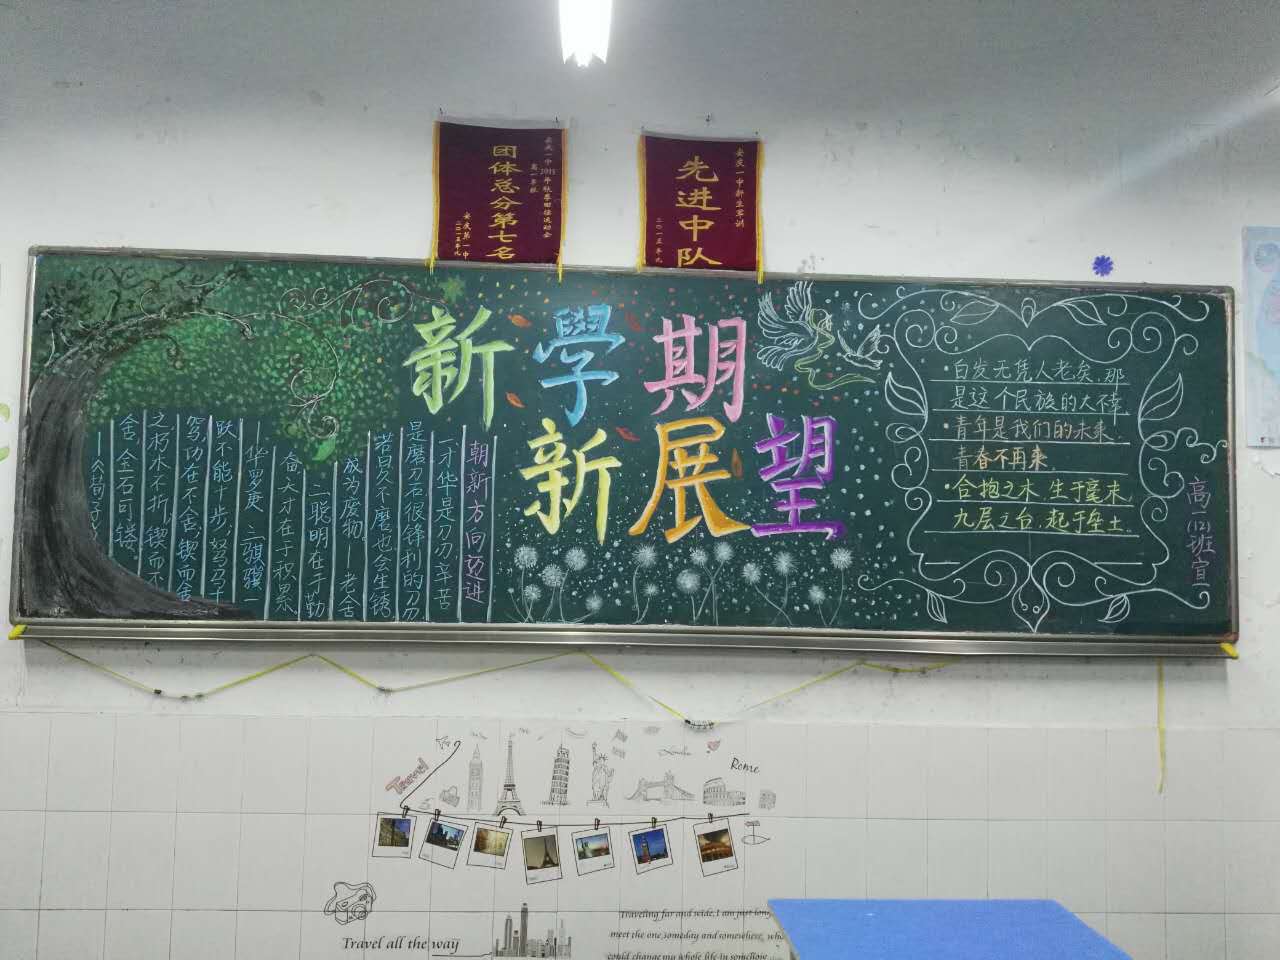 安庆一中2015年秋季田径运动会
高一年级
团体总分第七名
安庆第一中
二〇一五年九
安庆一中新生军训
先进中队
二〇一五年九
新學期
新展望
朝新方向迈进
一、才华是刀刃,辛苦
是磨刀石,很锋利的刀刃
若日久不磨,也会生锈
成为废物。—老舍
二、聪明在于勤
奋,天才在于积累
—华罗庚 三、骐骥一
跃,不能十步;驽马十
驾,功在不舍;锲而舍
之,朽木不折,锲而不
舍,金石可镂
—《荀子》
·白发无凭人老矣,那
是这个民族的大幸
·青年是我们的未来
青春不再来
·合抱之木,生于毫末
九层之台,起于垒土
高一(12)班宣
Travel
Rome
Travel all the way
Traveling far and wide,I am just long
meet the one,someday and somewhere, who
could change my whole life-in somehow